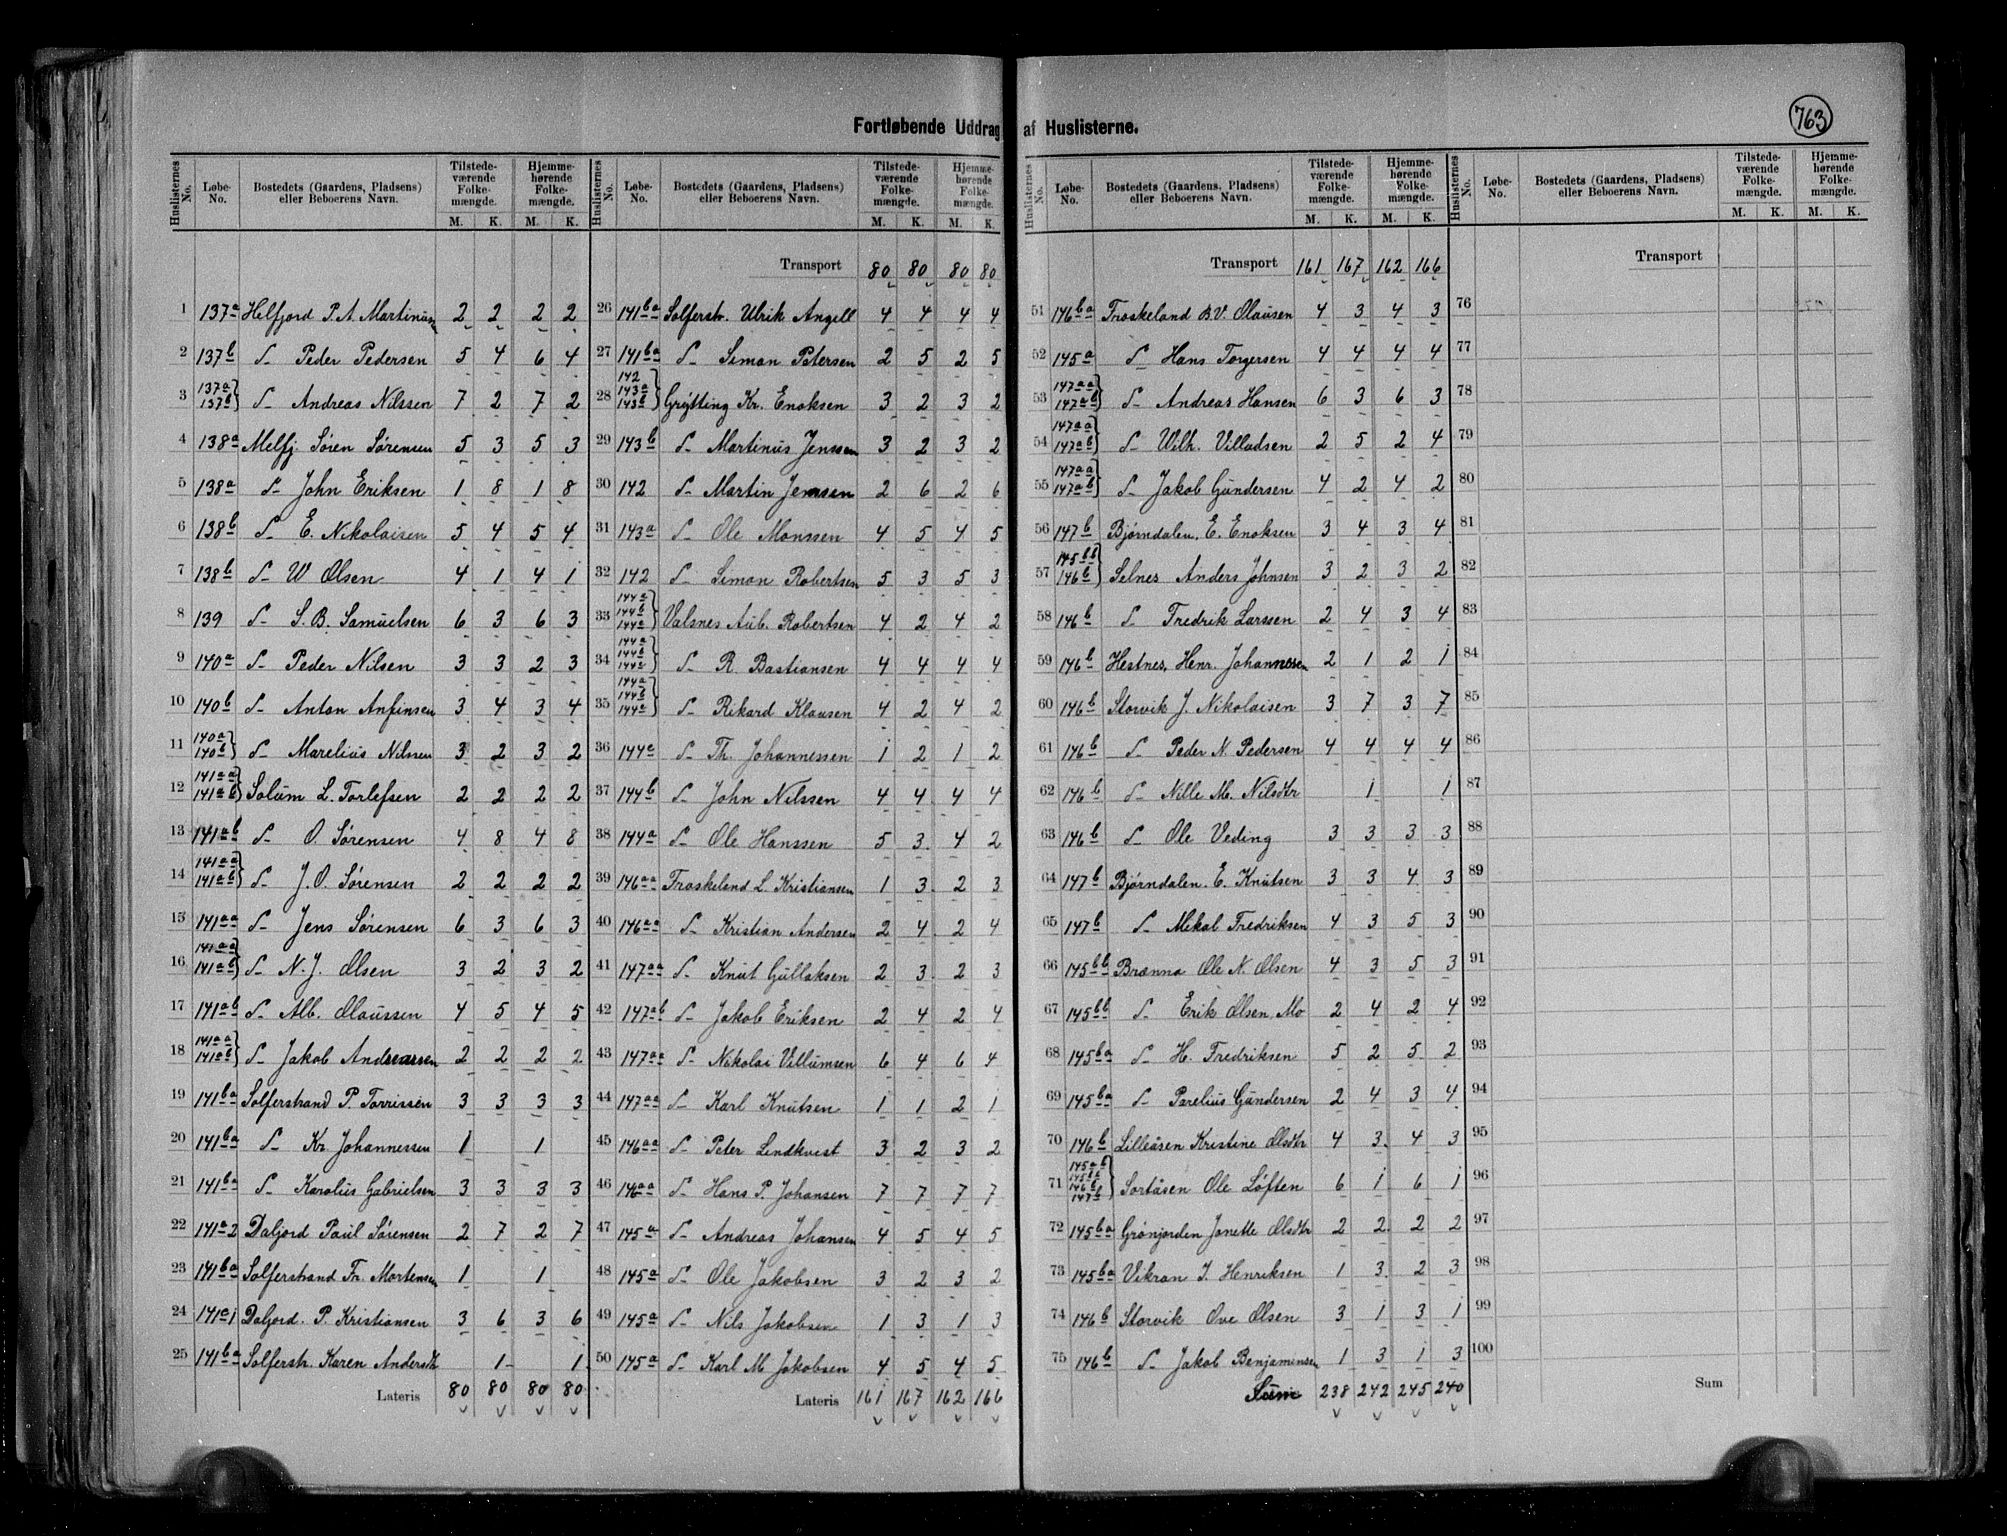 763
Fortløbende Uddrag af Huslisterne.
Huslisternes No. Løbe-No. Bostedets (Gaardens, Pladsens) eller Beboerens Navn. Tilstedeværende Folkemængde. M. K. Hjemmehørende Folkemængde. M. K.
1 137a Helfjord P. A. Martinus 2 2 2 2
2 137b D Peder Pedersen 5 4 6 4
3 137a 137b D Andreas Nilssen 7 2 7 2
4 138a Melfj. Søren Sørensen 5 3 5 3
5 138a D John Eriksen 1 8 1 8
6 138b D E. Nikolaisen 5 4 5 4
7 138b D W Olsen 4 1 4 1
8 139 D S. B. Samuelsen 6 3 6 3
9 140a D Peder Nilsen 3 3 2 3
10 140b D Anton Anfinsen 3 4 3 4
11 140a 140b D Marelius Nilssen 3 2 3 2
12 141aa 141ab Solum L. Torlefsen 2 2 2 2
13 141ab D O. Sørensen 4 8 4 8
14 141aa 141ab D J. O. Sørensen 2 2 2 2
15 141aa D Jens Sørensen 6 3 6 3
16 141aa 141ab D N. J. Olsen 3 2 3 2
17 141ab D Alb. Olaussen 4 5 4 5
18 141aa 141ab D Jakob Andreassen 2 2 2 2
19 141ba Solferstrand P. Torrissen 3 3 3 3
20 141ba D Kr Johannessen 1 1
21 141ba D Karolius Gabrielsen 3 3 3 3
22 141a2 Daljord Paul Sørensen 2 7 2 7
23 141ba Solferstrand Fr. Mortensen 1 1
24 141a1 Daljord. P. Kristiansen 3 6 3 6
25 141ba Solferstr. Karen Andersdtr 1 1
Lateris 80 80 80 80
Huslisternes No. Løbe-No. Bostedets (Gaardens, Pladsens) eller Beboerens Navn. Tilstedeværende Folkemængde. M. K. Hjemmehørende Folkemængde. M. K.
Transport 80 80 80 80
26 141ba Solferstr. Ulrik Angell 4 4 4 4
27 141ba D Simon Petersen 2 5 2 5
28 142 143a 143b Grytting Kr. Enoksen 3 2 3 2
29 143b D Martinus Jenssen 3 2 3 2
30 142 D Martin Jensen 2 6 2 6
31 143a D Ole Monssen 4 5 4 5
32 142 D Simon Robertsen 5 3 5 3
33 144a 144b 144c Valsnes Aub. Robertsen 4 2 4 2
34 144a 144b 144c D R. Bastiansen 4 4 4 4
35 144a 144b 144c D Rikard Klausen 4 2 4 2
36 144c D Th. Johannessen 1 2 1 2
37 144b D John Nilssen 4 4 4 4
38 144a D Ole Hanssen 5 3 4 2
39 146aa Troskeland L. Kristiansen 1 3 2 3
40 146aa D Kristian Andersen 2 4 2 4
41 147aa D Knut Gullaksen 2 3 2 3
42 147ab D Jakob Eriksen 2 4 2 4
43 147aa D Nikolai Villumsen 6 4 6 4
44 147aa D Karl Knutsen 1 1 2 1
45 146aa D Peter Lindkvist 3 2 3 2
46 146aa D Hans P. Johansen 7 7 7 7
47 145a D Andreas Johansen 4 5 4 5
48 145a D Ole Jakobsen 3 2 3 2
49 145a D Nils Jakobsen 1 3 1 3
50 145a D Karl M Jakobsen 4 5 4 5
Lateris 161 167 162 166
Huslisternes No. Løbe-No. Bostedets (Gaardens, Pladsens) eller Beboerens Navn. Tilstedeværende Folkemængde. M. K. Hjemmehørende Folkemængde. M. K.
Transport 161 167 162 166
51 146ba Troskeland B. V. Olausen 4 3 4 3
52 145a D Hans Torgersen 4 4 4 4
53 147aa 147ab D Andreas Hansen 6 3 6 3
54 147aa 147ab D Wilh. Villadsen 2 5 2 4
55 147aa 147ab D Jakob Gundersen 4 2 4 2
56 147b Bjørndalen. E. Enoksen 3 4 3 4
57 145bb 146b Selnes Anders Johnsen 3 2 3 2
58 146b D Fredrik Larssen 2 4 3 4
59 146b Hestnes, Henr. Johannessen 2 1 2 1
60 146b Storvik J. Nikolaisen 3 7 3 7
61 146b D Peder N. Pedersen 4 4 4 4
62 146b D Nille M. Nilsdtr 1 1
63 146b D Ole Veding 3 3 3 3
64 147b Bjørndalen. E. Knutsen 3 3 4 3
65 147b D Mekal Fredriksen 4 3 5 3
66 145bb Brænna Ole N. Olsen 4 3 5 3
67 145bb D Erik Olsen Mo 2 4 2 4
68 145ba D H. Fredriksen 5 2 5 2
69 145ba D Parelius Gundersen 2 4 3 4
70 146b Lilleåsen Kristine Olsdtr 4 3 4 3
71 145ab 145bb 146b 147b Sortåsen Ole Løften 6 1 6 1
72 145ba Grønjorden Janette Olsdtr 2 2 2 2
73 145ba Vikran J. Henriksen 1 3 2 3
74 146b Storvik Ove Olsen 3 1 3 1
75 146b D Jakob Benjaminsen 1 3 1 3
Sum 238 242 245 240
Huslisternes No. Løbe-No. Bostedets (Gaardens, Pladsens) eller Beboerens Navn. Tilstedeværende Folkemængde. M. K. Hjemmehørende Folkemængde. M. K.
Transport
76
77
78
79
80
81
82
83
84
85
86
87
88
89
90
91
92
93
94
95
96
97
98
99
100
Sum